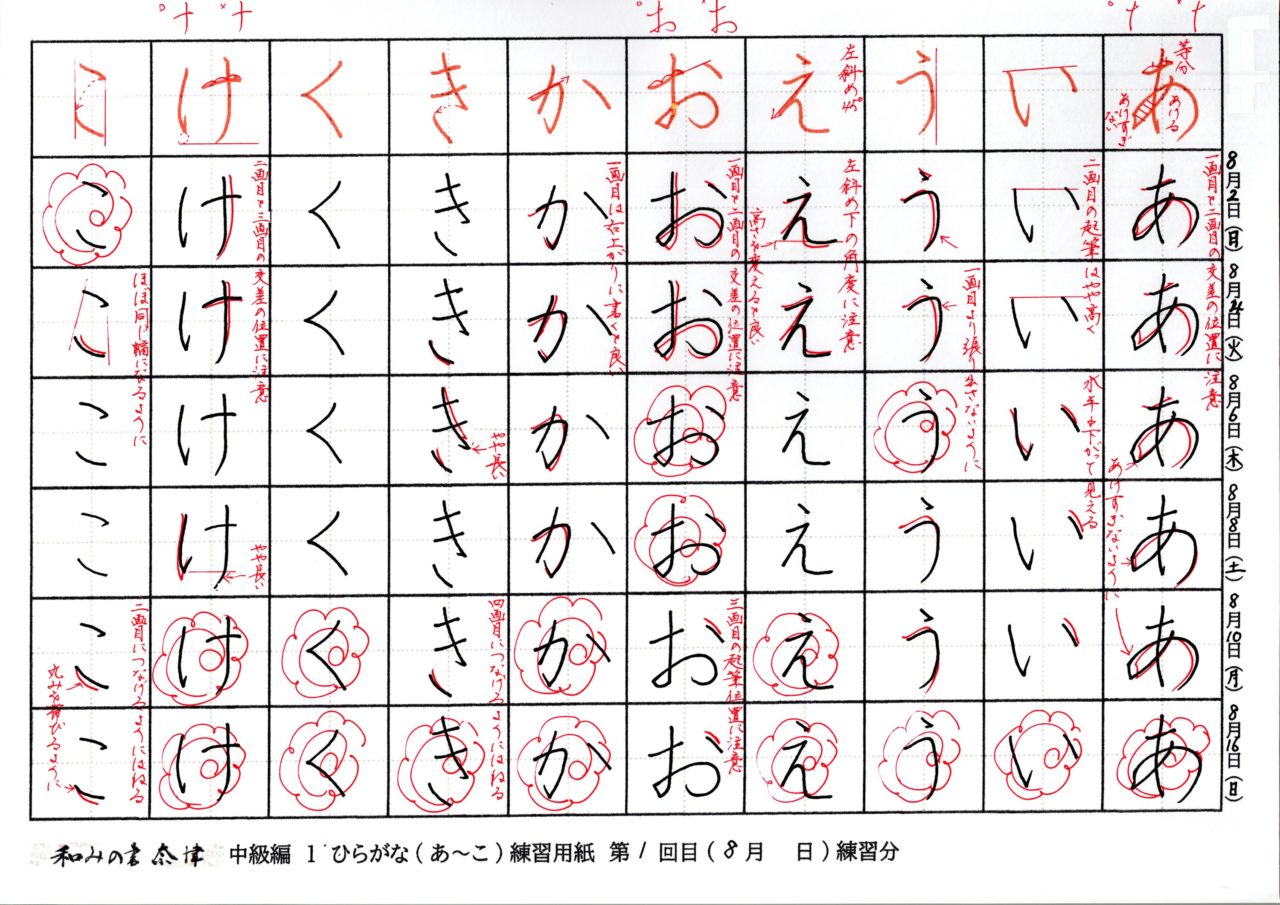 あ い う え お か き く け こ
等分
あける
あけすぎない
左斜め45°
8月2日(月)
あ い う え お か き く け こ
8月4日(火)
あ い う え お か き く け こ
8月6日(木)
あ い う え お か き く け こ
8月8日(土)
あ い う え お か き く け こ
8月10日(月)
あ い う え お か き く け こ
8月16日(日)
あ い う え お か き く け こ
一画目と二画目の交差の位置に注意
あけすぎないように
二画目の起筆はやや高く
水平か下がって見える
一画目より張り出さないように
左斜め下の角度に注意
高さを変えると良い
一画目と二画目の交差の位置に注意
三画目の起筆位置に注意
一画目は右上がりに書くと良い
やや長い
四画目につなげるようにはねる
二画目と三画目の交差の位置に注意
やや長い
ほぼ同じ幅になるように
二画目につなげるようにはねる
丸みを帯びるように
和みの書 奈津 中級編 1 ひらがな(あ〜こ)練習用紙 第1回目(8月 日)練習分